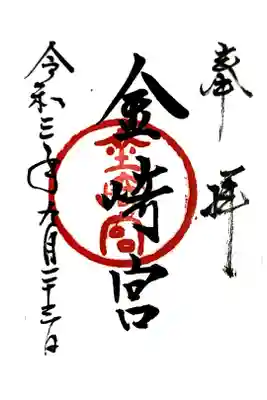 奉拝
金崎宮
令和三年九月二十三日